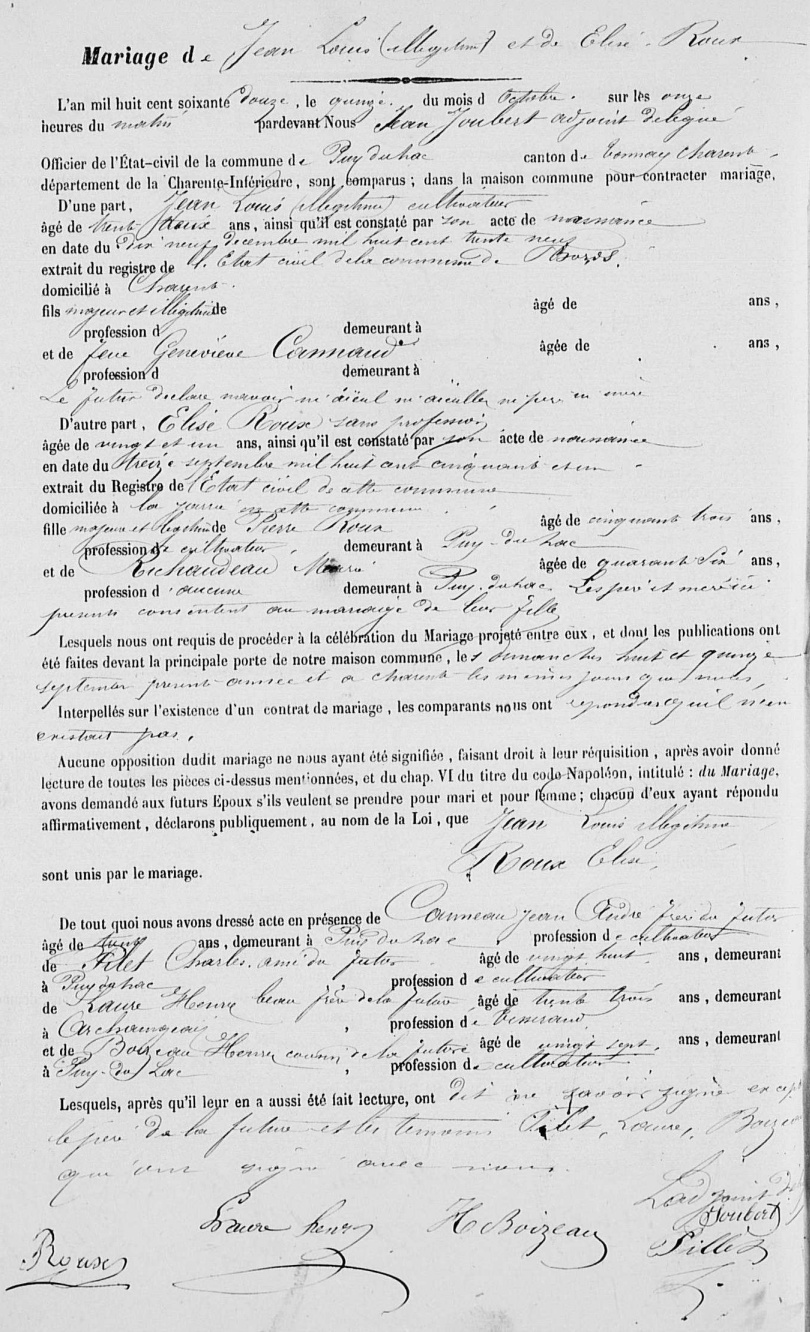 Mariage de Jean Louis (illegitime) et de Elise Roux
L'an mil huit cent soixante douze, le quinze du mois d Octobre sur les onze
heures du matin pardevant Nous Jean Joubert adjoint délégué
Officier de l'État-civil de la commune de Puy du Lac canton de tonnay charente
département de la Charente-Inférieure, sont comparus ; dans la maison commune pour contracter mariage,
D'une part, Jean Louis (illegitime) cultivateur
âgé de trente deux ans, ainsi qu'il est constaté par son acte de naissance
en date du dix neuf decembre mil huit cent trente neuf
extrait du registre de l'État civil de la commune de
domicilié à Charente
fils majeur et illegitime de âgé de ans,
profession d demeurant à
et de feue Geneviève Cannaud âgée de ans,
profession d demeurant à
Le futur declare n'avoir ni aïeul ni aieulle ni pere ni mere
D'autre part, Elise Roux sans profession
âgée de vingt et un ans, ainsi qu'il est constaté par son acte de naissance
en date du treize septembre mil huit cent cinquante et un
extrait du Registre de l'État civil de cette commune
domiciliée à la jarrie en cette commune
fille majeure et legitime de Pierre Roux âgé de cinquante trois ans,
profession de cultivateur demeurant à Puy-du-Lac
et de Richaudeau Marie âgée de quarante six ans,
profession d'aucune demeurant à Puy-du-Lac. Les père et mère ici
presents consentent au mariage de leur fille
Lesquels nous ont requis de procéder à la célébration du Mariage projeté entre eux, et dont les publications ont
été faites devant la principale porte de notre maison commune, les dimanches huit et quinze
septembre presente année et a charente les memes jours que nous,
Interpellés sur l'existence d'un contrat de mariage, les comparants nous ont repondu qu'il n'en
existait pas.
Aucune opposition dudit mariage ne nous ayant été signifiée, faisant droit à leur réquisition, après avoir donné
lecture de toutes les pièces ci-dessus mentionnées, et du chap. VI du titre du code Napoléon, intitulé : du Mariage,
avons demandé aux futurs Epoux s'ils veulent se prendre pour mari et pour femme ; chacun d'eux ayant répondu
affirmativement, déclarons publiquement, au nom de la Loi, que Jean Louis illegitime
Roux Elise,
sont unis par le mariage.
De tout quoi nous avons dressé acte en présence de Canneau Jean André frère du futur
âgé de ans, demeurant à Puy du Lac profession de cultivateur
de Filet Charles ami du futur âgé de vingt huit ans, demeurant
à Puy du Lac profession de cultivateur
de Laure Henry beau frère de la future âgé de trente trois ans, demeurant
à Archaingeay profession de tisserand
et de Boizeau Henry cousin de la future âgé de vingt sept ans, demeurant
à Puy-du-Lac profession de cultivateur
Lesquels, après qu'il leur en a aussi été fait lecture, ont dit ne savoir signer excepté
le père de la future et les temoins Filet, Laure, Boizeau
qui ont signé avec nous.
L'adjoint d
Joubert
Laure henry H Boizeau Pillet
Roux